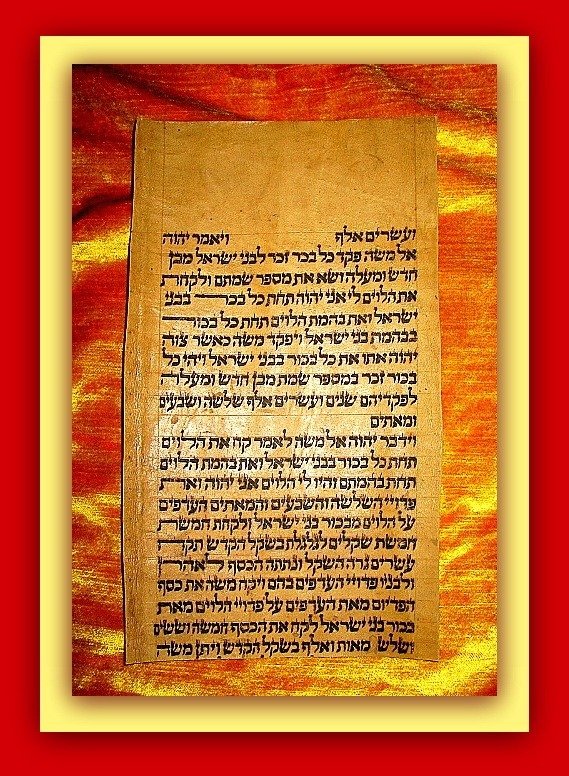 ועשרים אלף ויאמר יהוה
אל משה פקד כל בכר זכר לבני ישראל מבן
חדש ומעלה ושא את מספר שמתם ולקחת
את הלוים לי אני יהוה תחת כל בכר בבני
ישראל ואת בהמת הלוים תחת כל בכור
בבהמת בני ישראל ויפקד משה כאשר צוה
יהוה אתו את כל בכור בבני ישראל ויהי כל
בכור זכר במספר שמת מבן חדש ומעלה
לפקדיהם שנים ועשרים אלף שלשה ושבעים
ומאתים
וידבר יהוה אל משה לאמר קח את הלוים
תחת כל בכור בבני ישראל ואת בהמת הלוים
תחת בהמתם והיו לי הלוים אני יהוה ואת
פדויי השלשה והשבעים והמאתים העדפים
על הלוים מבכור בני ישראל ולקחת חמשת
חמשת שקלים לגלגלת בשקל הקדש תקח
עשרים גרה השקל ונתתה הכסף לאהרן
ולבניו פדויי העדפים בהם ויקח משה את כסף
הפדיום מאת העדפים על פדויי הלוים מאת
בכור בני ישראל לקח את הכסף חמשה וששים
ושלש מאות ואלף בשקל הקדש ויתן משה